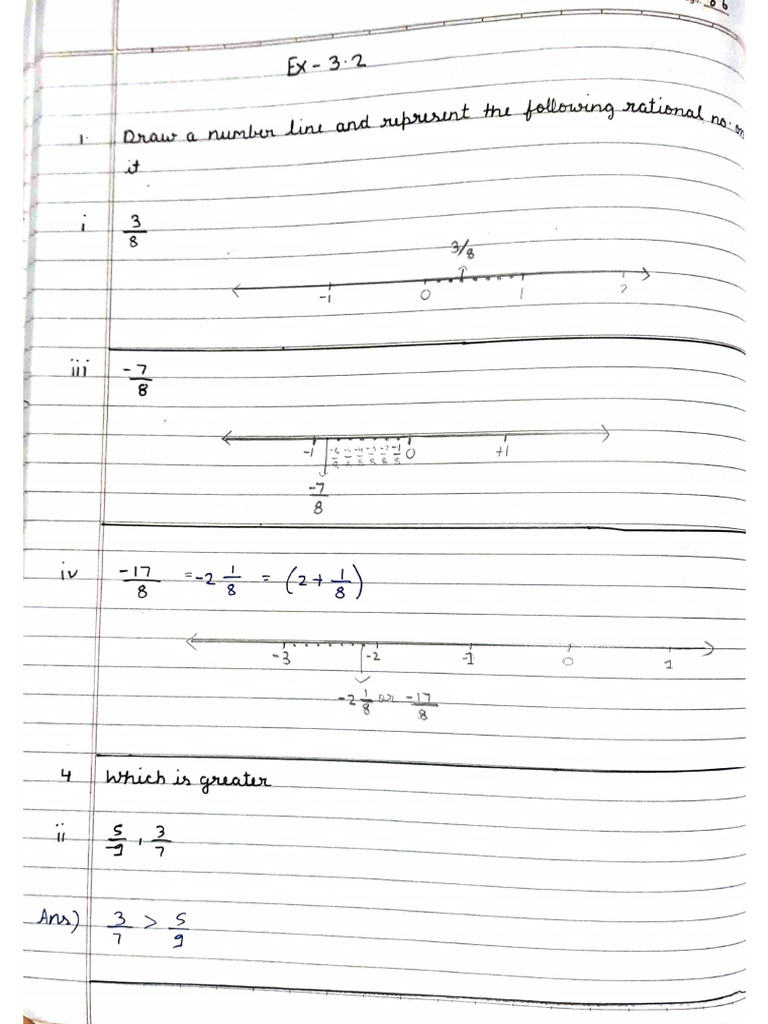 Ex - 3.2
1. Draw a number line and represent the following rational no. on
it
i 3/8
3/8
-1 0 1 2
iii -7/8
-1 -6/8 -5/8 -4/8 -3/8 -2/8 -1/8 0 +1
-7/8
iv -17/8 = -2 1/8 = (2 + 1/8)
-3 -2 -1 0 1
-2 1/8 or -17/8
4 Which is greater
ii 5/-9 , 3/7
Ans) 3/7 > 5/9